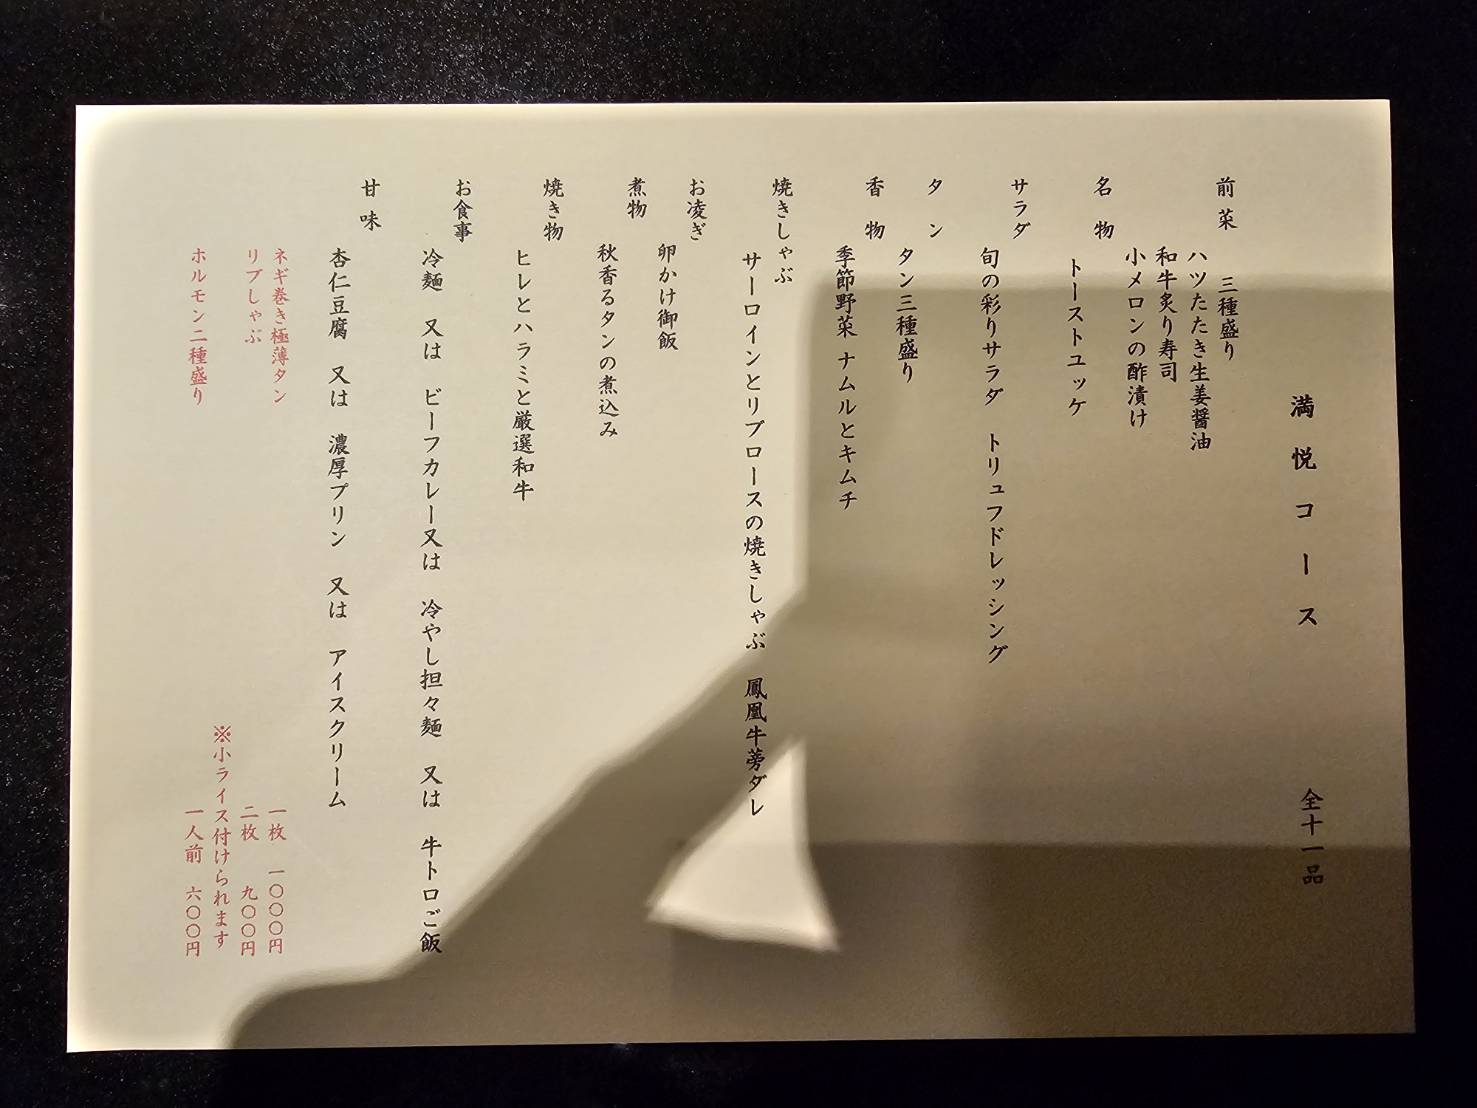 満悦コース 全十一品
前菜 三種盛り
ハツたたき生姜醤油
和牛炙り寿司
小メロンの酢漬け
名物 トーストユッケ
サラダ 旬の彩りサラダ トリュフドレッシング
タン タン三種盛り
香物 季節野菜 ナムルとキムチ
焼きしゃぶ サーロインとリブロースの焼きしゃぶ 鳳凰牛蒡ダレ
お凌ぎ 卵かけ御飯
煮物 秋香るタンの煮込み
焼き物 ヒレとハラミと厳選和牛
お食事 冷麺 又は ビーフカレー又は 冷やし担々麺 又は 牛トロご飯
甘味 杏仁豆腐 又は 濃厚プリン 又は アイスクリーム
ネギ巻き極薄タン 一枚 一〇〇〇円
リブしゃぶ 二枚 九〇〇円
※小ライス付けられます
ホルモン二種盛り 一人前 六〇〇円